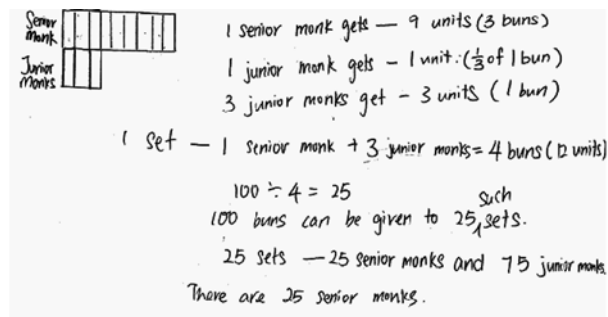 Senior
Monk
Junior
Monks
1 senior monk gets — 9 units (3 buns)
1 junior monk gets — 1 unit: (1/3 of 1 bun)
3 junior monks get – 3 units (1 bun)
1 set — 1 senior monk + 3 junior monks = 4 buns (12 units)
100 ÷ 4 = 25
100 buns can be given to 25 such sets.
25 sets — 25 senior monks and 75 junior monks.
There are 25 senior monks.